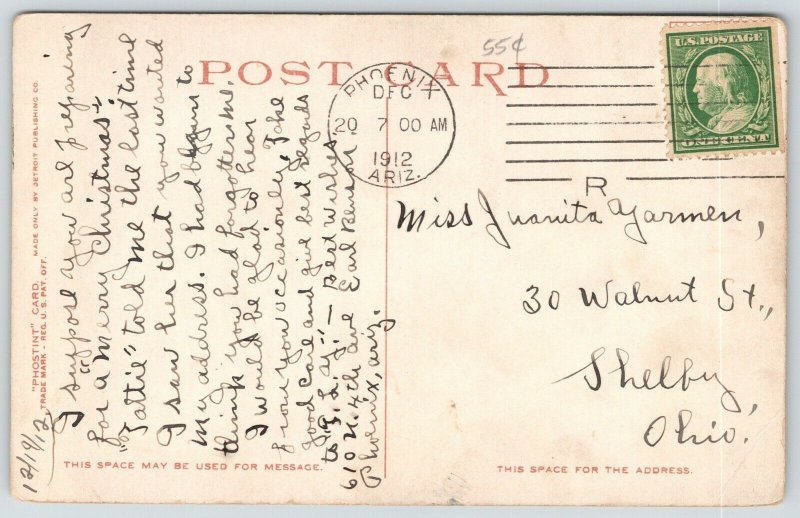 POST CARD
55¢
PHOENIX
DEC
20 7 00 AM
1912
ARIZ.
R
U.S. POSTAGE
ONE CENT
"PHOSTINT" CARD.
TRADE MARK - REG. U. S. PAT. OFF. MADE ONLY BY DETROIT PUBLISHING CO.
12/19/12
I suppose you are preparing
for a "Merry Christmas".
told me the last time
I saw her that you wanted
my address. I had begun to
think you had forgotten me.
I would be glad to hear
from you occasionly. Take
good care and give best regards
to — Best wishes,
610 N. 4th ave Earl Benson
Phoenix, Ariz.
Miss Juanita Yarmen,
30 Walnut St.,
Shelby,
Ohio.
THIS SPACE MAY BE USED FOR MESSAGE.
THIS SPACE FOR THE ADDRESS.